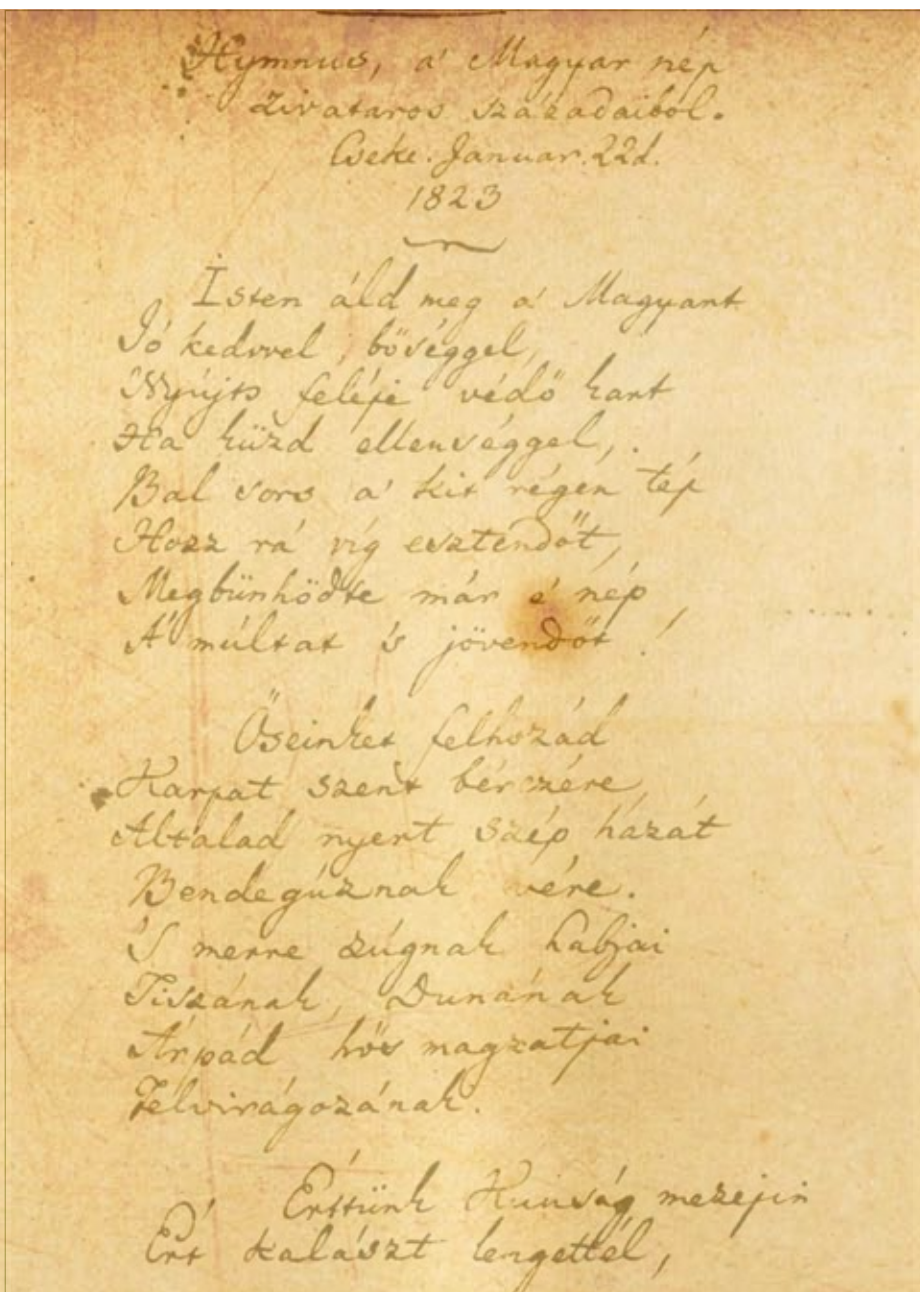 Hymnus, a' Magyar nép
zivataros századaiból.
Cseke. Januar. 22d.
1823
Isten áld meg a' Magyart
Jó kedvvel, bőséggel,
Nyújts feléje védő kart
Ha küzd ellenséggel,
Bal sors a' kit régen tép
Hozz rá víg esztendőt,
Megbűnhődte már e' nép
A' múltat 's jövendőt!
Őseinket felhozád
Kárpát szent bérczére
Általad nyert szép hazát
Bendegúznak vére.
'S merre zúgnak habjai
Tiszának, Dunának
Árpád hős magzatjai
Felvirágozának.
Értünk Kunság mezején
Ért kalászt lengettél,